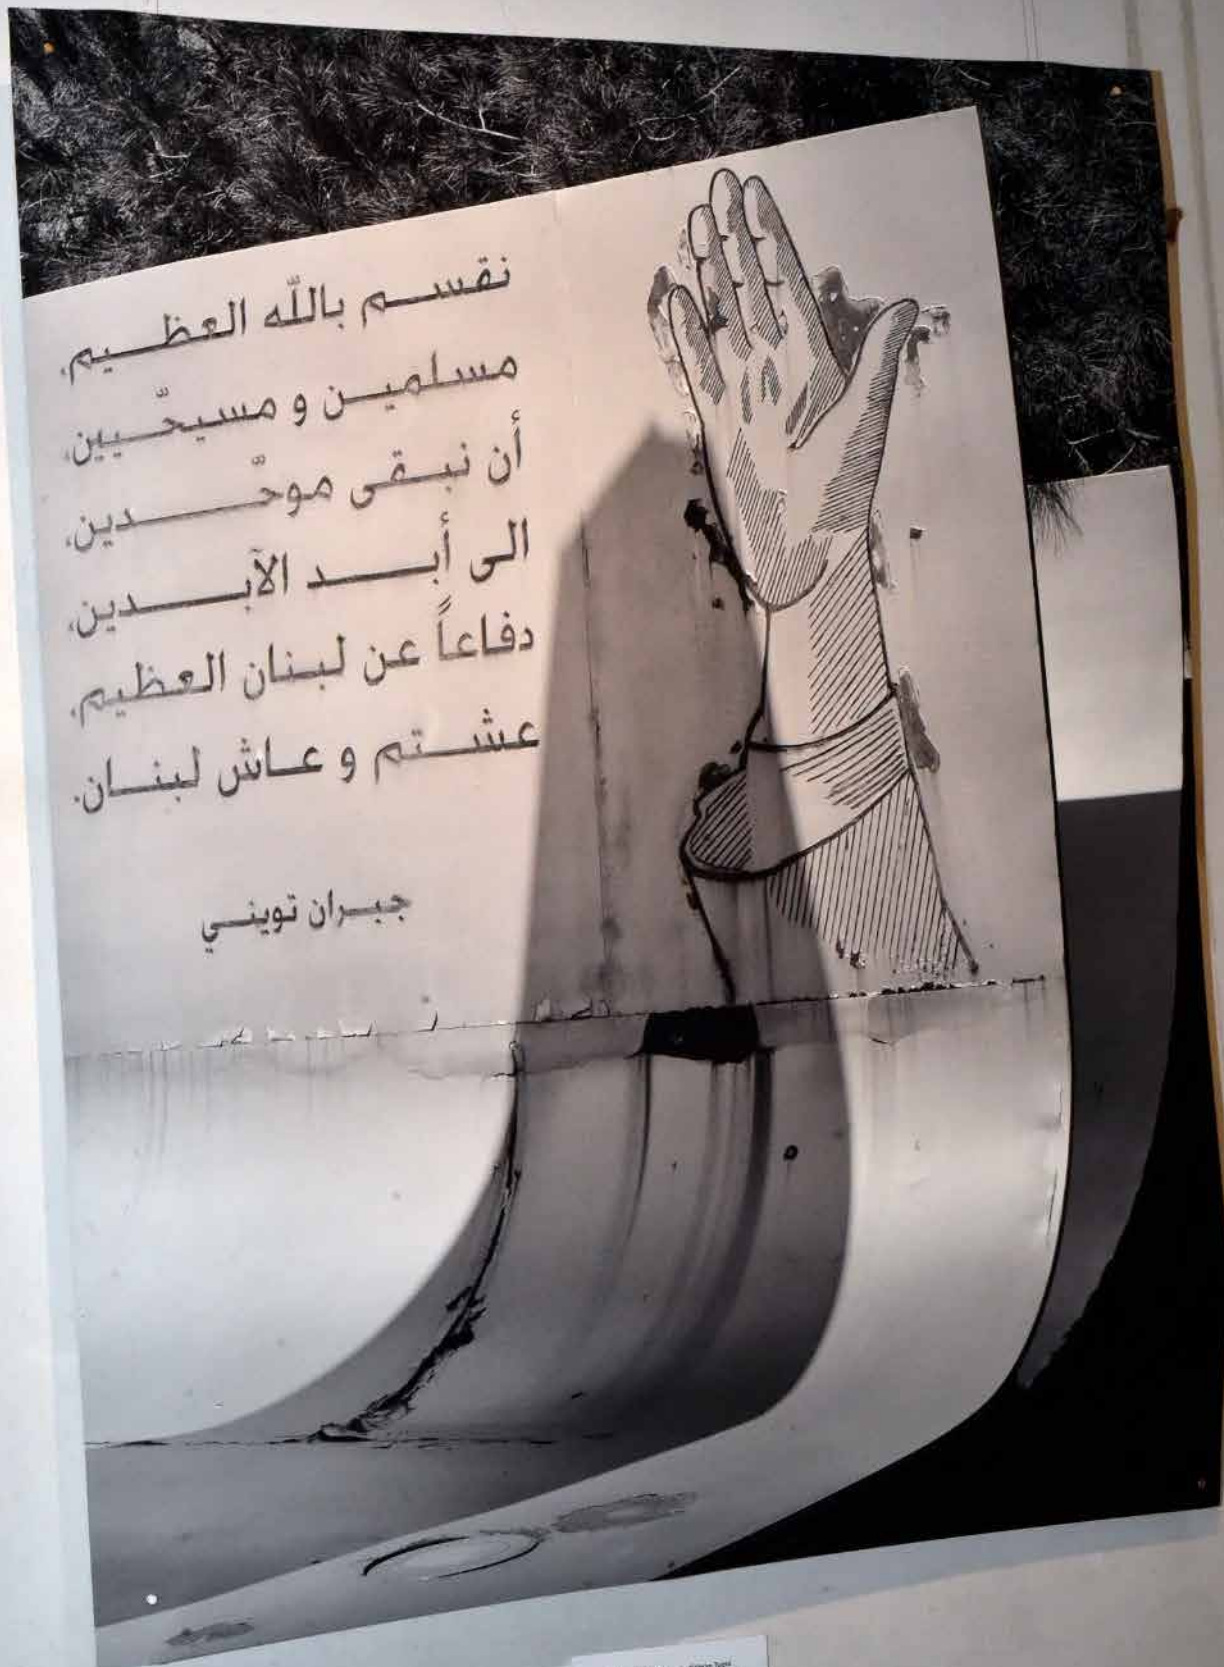 نقسم بالله العظيم،
مسلمين و مسيحيّين،
أن نبقى موحّدين،
الى أبد الآبدين،
دفاعاً عن لبنان العظيم،
عشتم و عاش لبنان.
جبران تويني